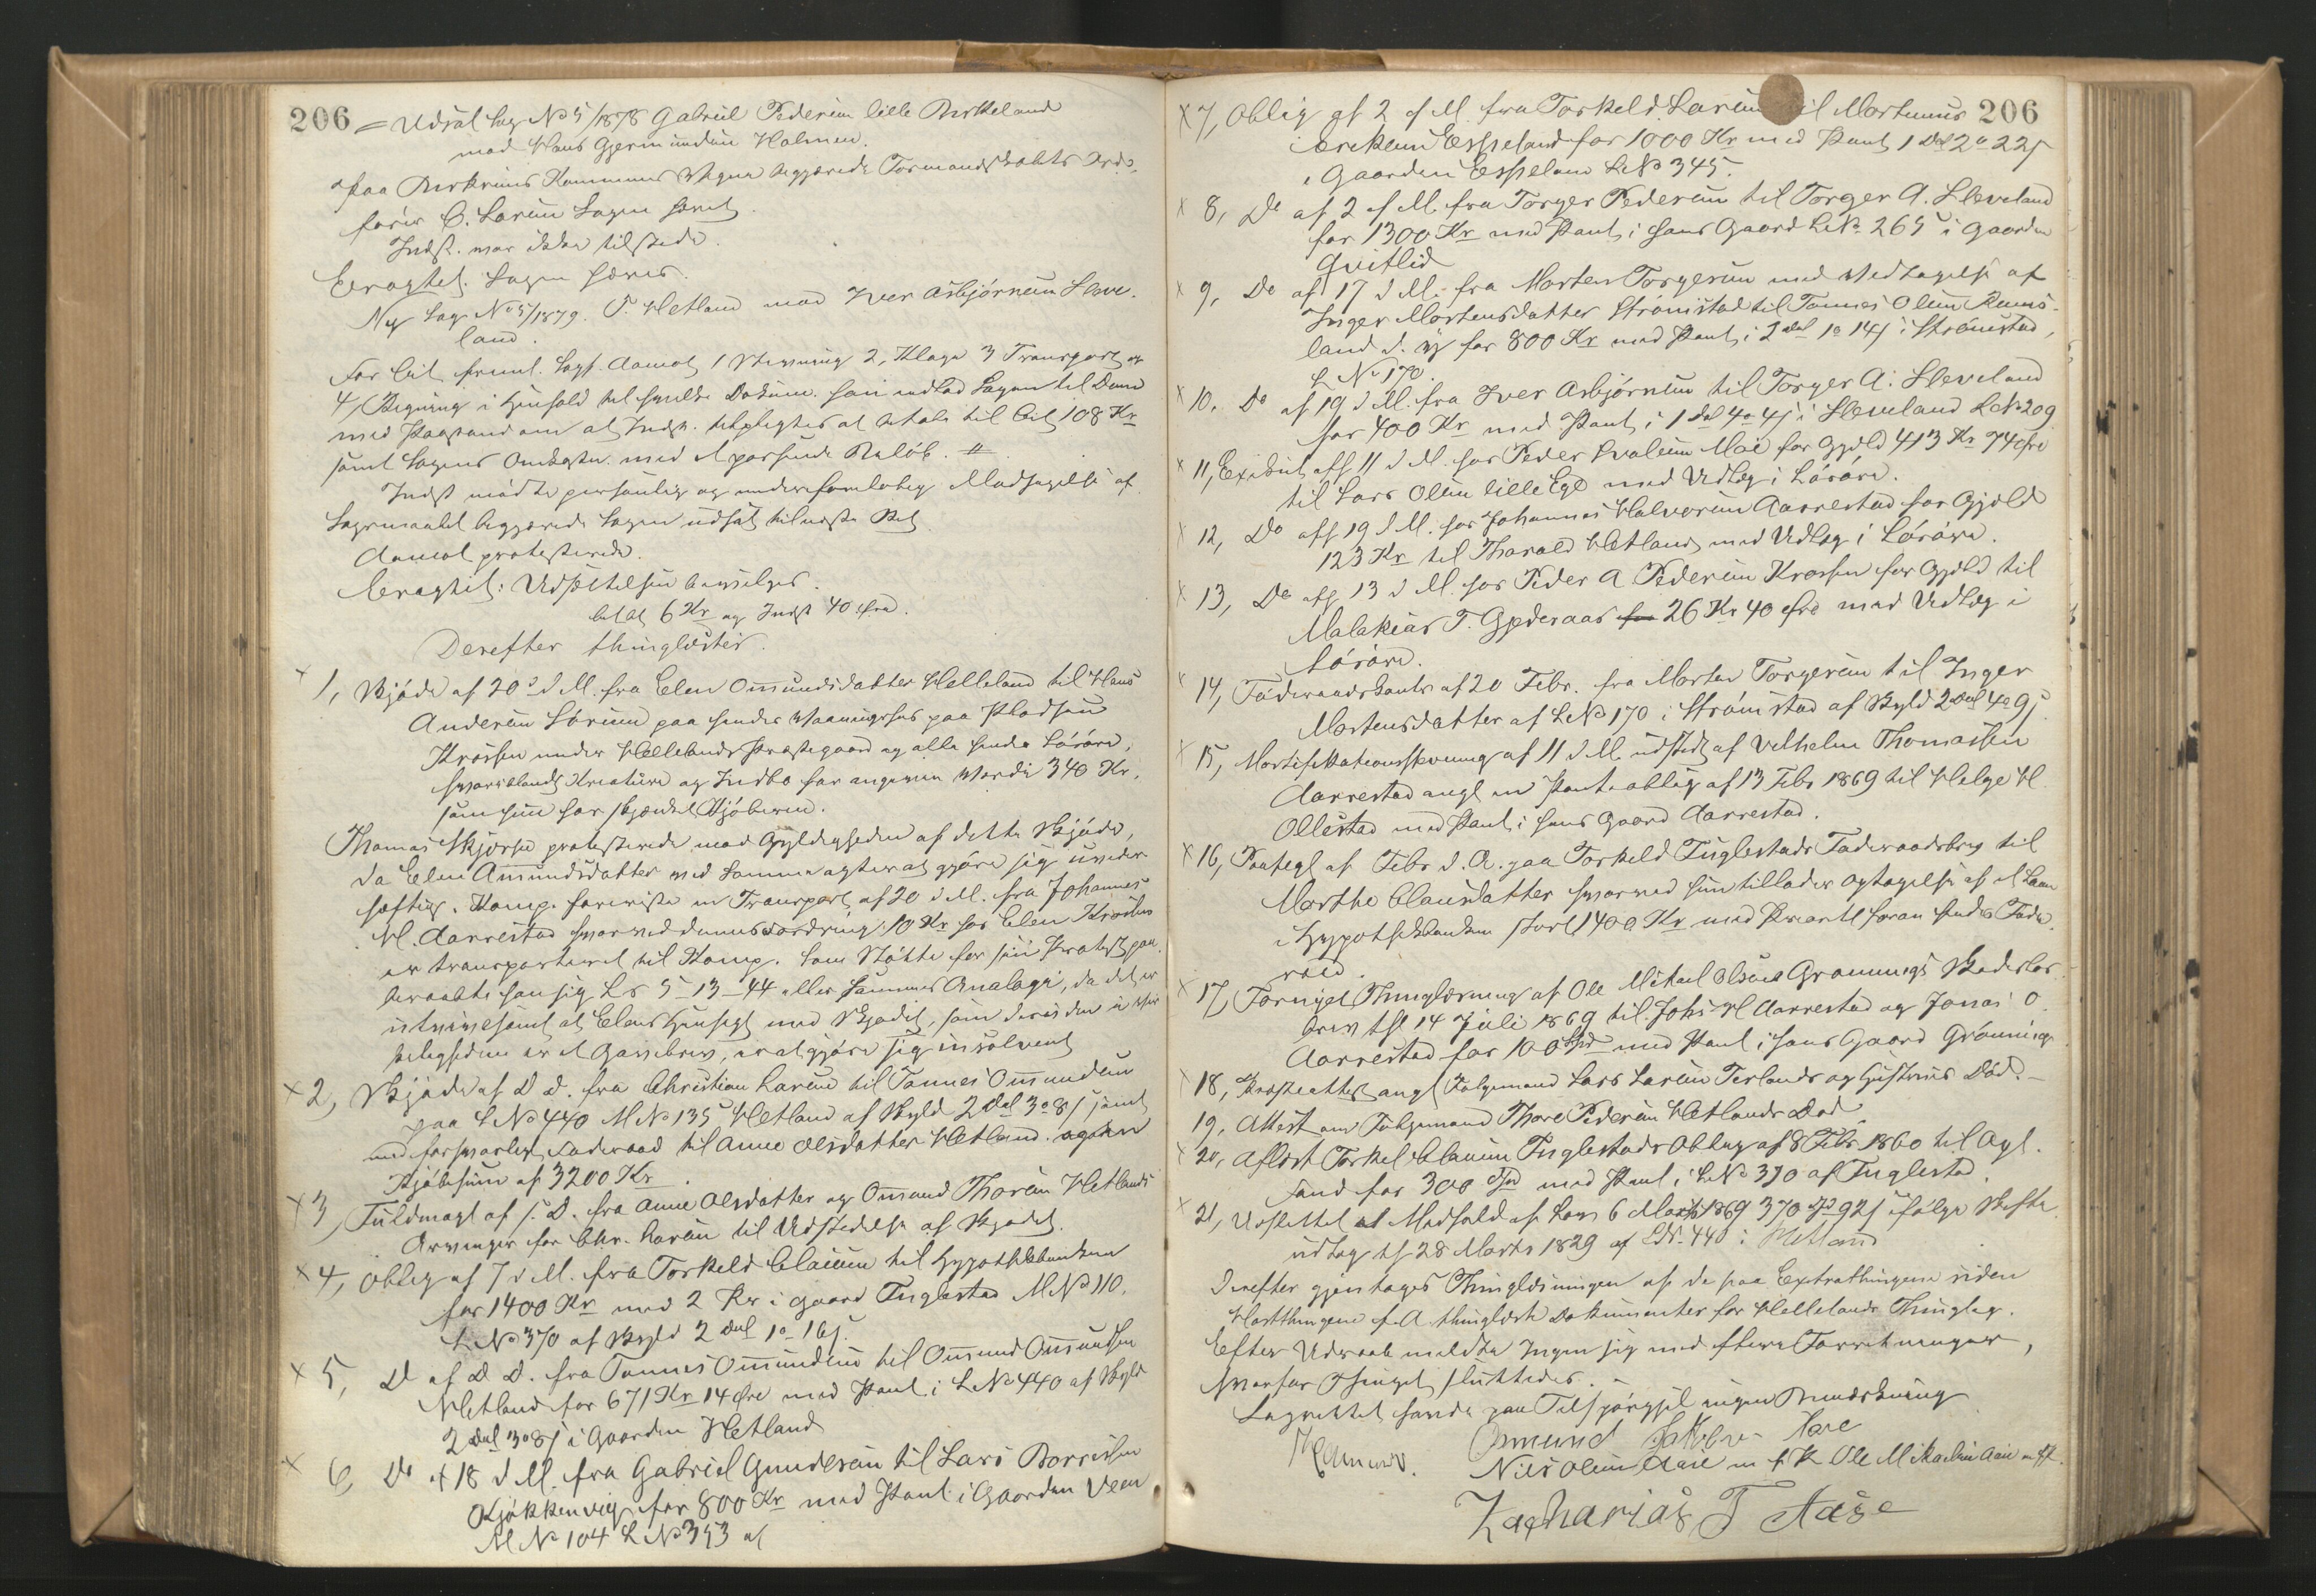 206 = Udsat Sag No 5/1878 Gabriel Pedersen lille Birkeland
mod Hans Gjermundsen Holmen.
paa Birkrims Kommunes Vegne begjærede Formandskabets Ord-
fører C. Larsen Sagen hævet
Indst. var ikke tilstede.
Eragtet: Sagen hæves.
Ny Sag No 5/1879. T. Hetland mod Iver Asbjørnsen Sleve-
land.
For Cit. freml. Sagf. Aamot 1 Stevning 2, Klage 3 Transport og
4, Regning i Henhold til hvilke Dokum. han indlod Sagen til Doms
med Paastand om at Indst. tilpligtes at betale til Cit. 108 Kr
samt Sagens Omkostn. med et passende Beløb. //
Indst mødte personlig og under foreløbig Modsigelse af
Sagsmaalet begjærede Sagen udsat til næste Ret
Aamot protesterede.
Eragtet: Udsættelsen bevilges.
bet Cit 6 Kr og Indst 40 Øre.
Derefter thinglæstes.
1, Skjøde af 20de d M. fra Elen Omundsdatter Helleland til Hans
Andersen Sørum paa hendes Vaaningshus paa Pladsen
Krossen under Hellelands Præstegaard og alle hendes Løsøre,
hvoriblandt Kreature og Indbo for angiven Værdi 340 Kr,
som hun har skjænket Kjøberen.
Thomas Skjerpe protesterede mod Gyldigheden af dette Skjøde,
da Elen Amundsdatter ved samme agter at gjøre sig uveder-
hæftig. Komp. foreviste en Transport af 20 d M. fra Johannes
H. Aarrestad hvorved dennes Fordring 10 Kr hos Elen Krossen
er transporteret til Komp. Som Støtte for sin Protest paa-
beraabte han sig L 5-13-44 eller sammes Analogi, da det er
utvivlsomt at Elens Hensigt med Skjødet, som desuden i Vir-
keligheden er et Gavebrev, er at gjøre sig insolvent
2, Skjøde af D. D. fra Christian Larsen til Tønnes Omundsen
paa L No 440 M No 135 Hetland af Skyld 2 Dal 3 o 8 s samt
med forsvarlig Føderaad til Anne Olsdatter Hetland og en
Kjøbesum af 3200 Kr.
3, Fuldmagt af s. D. fra Anne Olsdatter og Omund Thorsen Hetlands
Arvinger for Chr. Larsen til Udstedelse af Skjødet.
4, Oblig af 7 d M. fra Torkeld Clausen til Hypothekbanken
for 1400 Kr med 2 Pr i Gaard Fuglestad M No 110,
L No 370 af Skyld 2 Dal 1 o 16 s.
5, Do af D D. fra Tønnes Omundsen til Omund Omundsen
Hetland for 671 Kr 14 Øre med Pant i L No 440 af Skyld
2 Dal 3 o 8 s i Gaarden Hetland
6, Do af 18 d M. fra Gabriel Gundersen til Lars Borresen
Kjøkkenvig for 800 Kr med Pant i Gaarden Veen
M No 104 L No 353 af
7, Oblig af 2 d M. fra Torkeld Larsen til Mortinus 206
Ereksen Espeland for 1000 Kr med Pant 1 Dal 2 o 22 s
i Gaarden Espeland L No 345.
8, Do af 2 d M. fra Torger Pedersen til Torger A. Sleveland
for 1300 Kr med Pant i hans Gaard L No 265 i Gaarden
Qvitlid
9, Do af 17 d M. fra Morten Torgersen med Vedtagelse af
Inger Mortensdatter Strømstad til Tønnes Olsen Rams-
land d. y for 800 Kr med Pant i 2 Dal 1 o 14 s i Strømstad,
L No 170.
10, Do af 19 d M. fra Iver Asbjørnsen til Torger A. Sleveland
for 400 Kr med Pant i 1 Dal 4 o 4 s i Sleveland L No 209
11, Exekut. aff 11 d M. hos Peder Hvalsen Moi for Gjæld 413 Kr 74 Øre
til Lars Olsen lille Ege med Udlæg i Løsøre.
12, Do aff 19 d M. hos Johannes Halvorsen Aarrestad for Gjæld
123 Kr til Tharald Hetland med Udlæg i Løsøre.
13, Do aff 13 d M. hos Peder A Pedersen Krossen for Gjæld til
Malakias T. Gjederaas for 26 Kr 40 Øre med Udlæg i
Løsøre.
14, Føderaadskontr af 20 Febr. fra Morten Torgersen til Inger
Mortensdatter af L No 170 i Strømstad af Skyld 2 Dal 4 o 9 s
15, Mortifikationsstevning af 11 d M. udstedt af Vilhelm Thomassen
Aarrestad angl en Panteoblig af 13 Febr 1869 til Helge H.
Ollestad med Pant i hans Gaard Aarrestad.
16, Paategn af Febr d. A. paa Torkeld Fuglestads Føderaadsbrev til
Marthe Clausdatter hvorved hun tillader Optagelse af et Laan
i Hypothekbanken stort 1400 Kr med Prioritet foran hendes Føde-
raad.
17, Fornyet Thinglæsning af Ole Mikael Olsen Grønnings Skadeslos-
brev tgl 14 Juli 1869 til Johs H Aarrestad og Jonas O
Aarrestad for 100 Spd med Pant i hans Gaard Grønning
18, Præsteattest angl Fulgemand Lars Larsen Terlands og Hustrus Død.-
19, Attest om Fulgemand Thore Pedersen Hetlands Død.
20, Aflæst Torkel Clausen Fuglestads Oblig af 8 Febr 1860 til Opl.
Fond for 300 Spd med Pant i L No 370 af Fuglestad
21, Udslettet i Medhold af Lov 6 Marts 1869 370 Spd 92 s ifølge Skifte-
udlæg tgl 28 Marts 1829 af L No 440 i Hetland
Derefter gjentages Thinglæsningen af de paa Extrathingene siden
Høstthinget f. A. thinglæste Dokumenter for Hellelands Thinglag.
Efter Udraab meldte Ingen sig med flere Forretninger,
hvorfor Thinget sluttedes.
Lagrettet havde paa Tilspørgsel ingen Bemærkning
Osmund Jakobsen Aase
Nils Olsen Aase m f P Ole Mikaelsen Aase m f P.
Zacharias T Aase